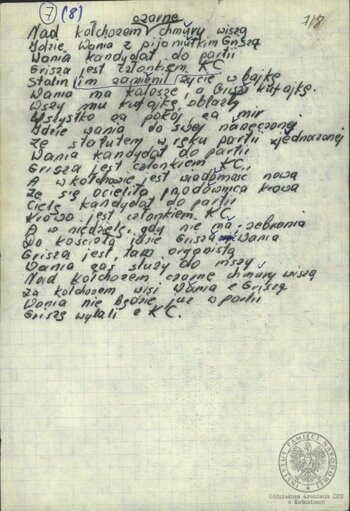 7 (8)
1/8
czarne
Nad kołchozem chmury wiszą
Idzie Wania z pijaniutkim Griszą
Wania kandydat do partii
Grisza jest członkiem KC
Stalin im zamienił życie w bajkę
Wania ma kalosze a Grisza kufajkę
Wszy mu kufajkę oblazły
Wszystko za pokój za mir
Idzie Wania do swej narzeczonej
Ze statutem w ręku partii zjednoczonej
Wania kandydat do partii
Grisza jest członkiem KC,
A w kołchozie jest wiadomość nowa
Że się ocieliła przodownica krowa
Cielę kandydat do partii
Krowa jest członkiem KC
A w niedzielę, gdy nie ma zebrania
Do kościoła idzie Grisza Wania
Grisza jest tam organistą
Wania zaś służy do mszy
Nad kołchozem czarne chmury wiszą
Za kołchozem wisi Wania z Griszą
Wania nie będzie już w partii
Griszę wylali z KC.
INSTYTUT PAMIĘCI NARODOWEJ
Oddziałowe Archiwum IPN
w Katowicach